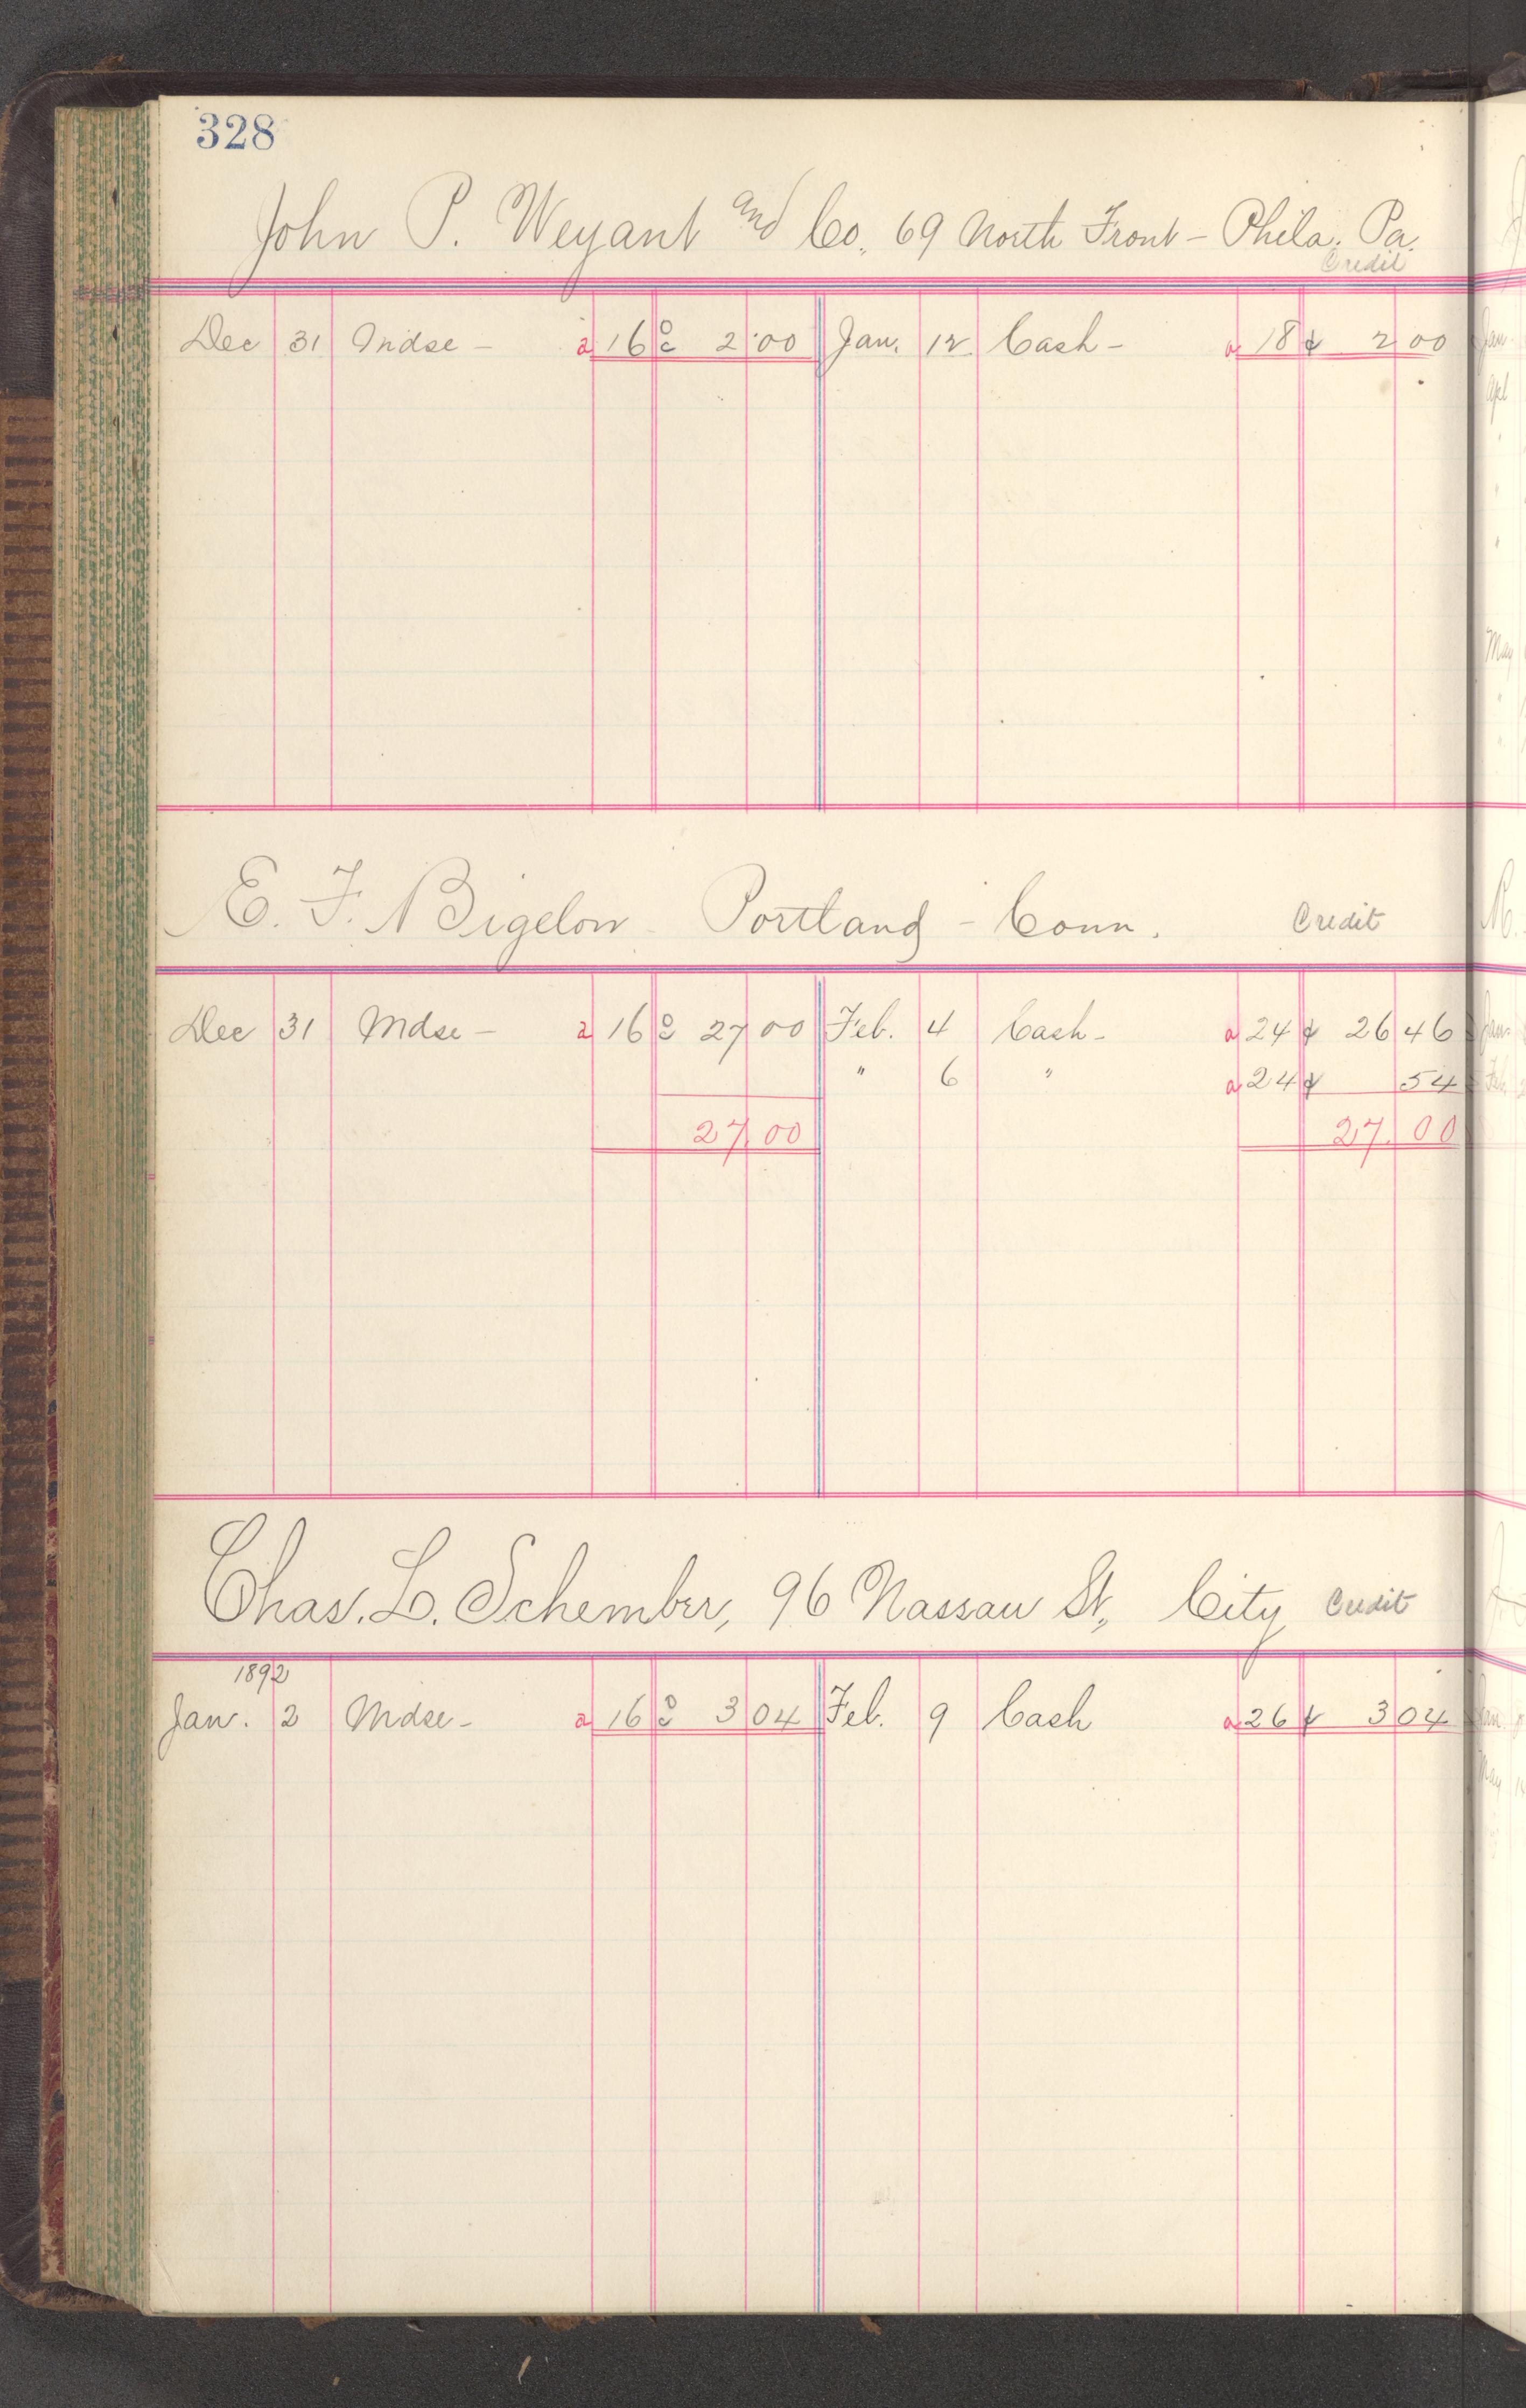 328
John P. Weyant and Co. 69 North Front - Phila. Pa.
Credit
Dec 31 Mdse - a 16 2 00 Jan. 12 Cash - a 18 2 00
E. F. Bigelow - Portland - Conn. Credit
Dec 31 Mdse - a 16 27 00 Feb. 4 Cash - a 24 26 46
" 6 " a 24 54
27.00 27.00
Chas. L. Schember, 96 Nassau St., City Credit
1892
Jan. 2 Mdse - a 16 3 04 Feb. 9 Cash a 26 3 04
Jan
Apl
May
Jan.
Feb.
Jan
May